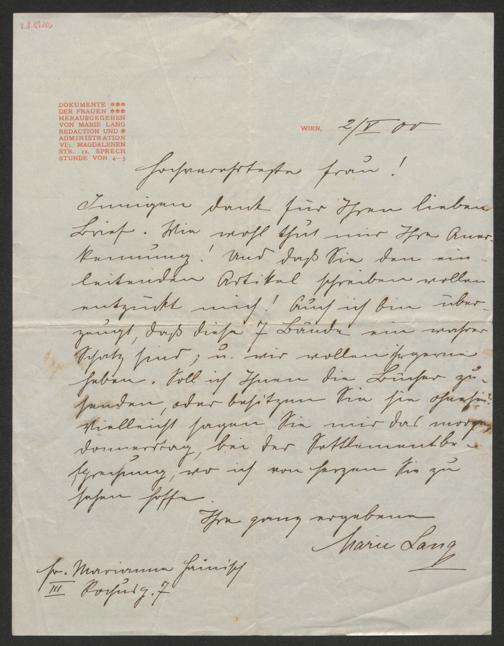 DOKUMENTE ***
DER FRAUEN ***
HERAUSGEGEBEN
VON MARIE LANG
REDACTION UND *
ADMINISTRATION
VI/1, MAGDALENEN
STR. 12. SPRECH
STUNDE VON 4–5
WIEN, 2/V 00
Hochverehrteste Frau!
Innigen Dank für Ihren lieben
Brief. Wie wohl thut mir Ihre Aner-
kennung! Und daß Sie den ein-
leitenden Artikel schreiben wollen
entzückt mich! Auch ich bin über-
zeugt, daß diese 7 Bände ein wahrer
Schatz sind; u. wir wollen sie gerne
heben. Soll ich Ihnen die Bücher zu-
senden, oder besitzen Sie sie ohnehin
Vielleicht sagen Sie mir das morgen
Donnerstag, bei der Settlementbe-
sprechung, wo ich von Herzen Sie zu
sehen hoffe.
Ihre ganz ergebene
Marie Lang
Fr. Marianne Hainisch
III Rochusg. 7